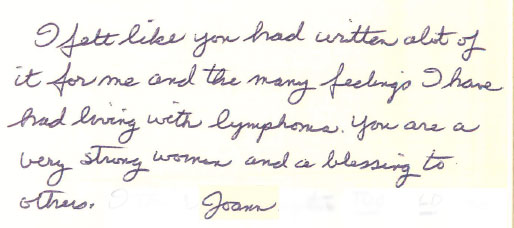 I felt like you had written alot of
it for me and the many feelings I have
had living with lymphoma. You are a
very strong women and a blessing to
others. Joann